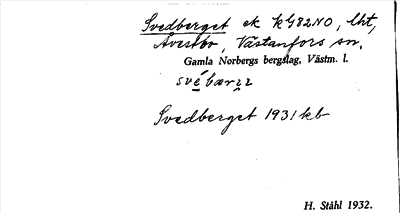 Svedberget ek kG82NO, lht,
Avestbo, Västanfors sn.
Gamla Norbergs bergslag, Västm. l.
své̱bær̤ɪ
Svedberget 1931 kb
H. Ståhl 1932.